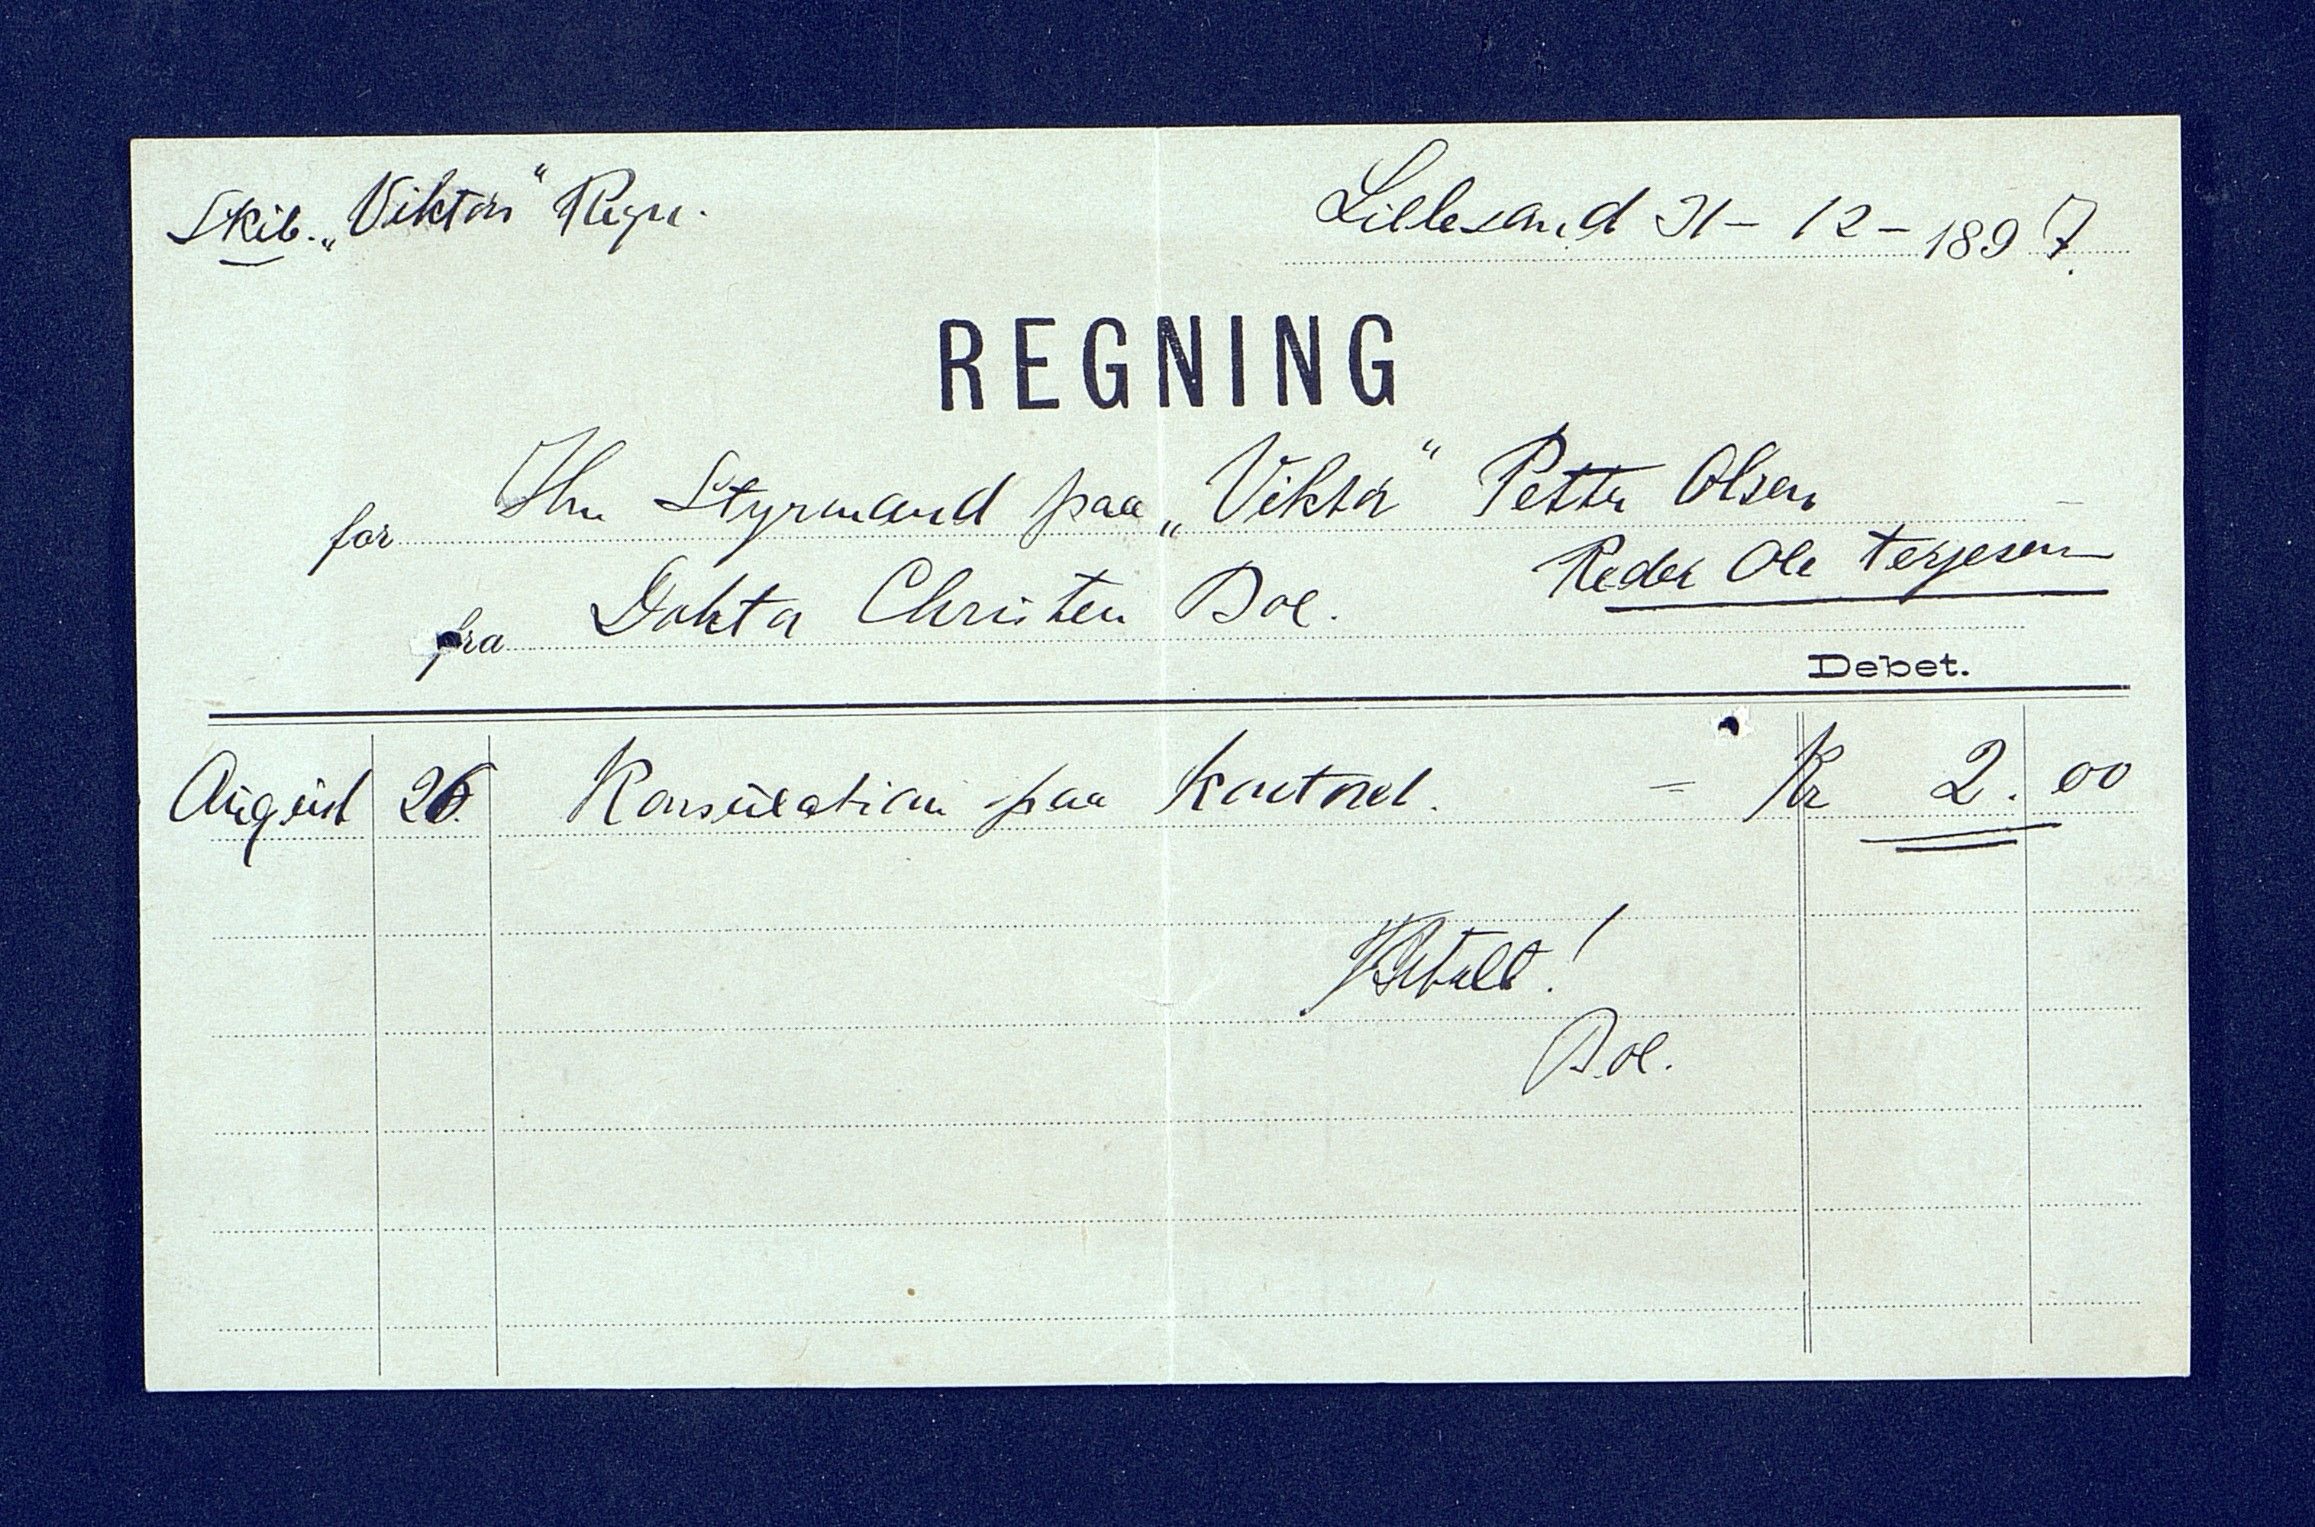 Skib. „Viktor“ Regn.
Lillesand 31 - 12 - 1897.
REGNING
for Hrr Styrmand paa „Viktor“ Petter Olsen
Reder Ole Terjesen
fra Doktor Christen Boe.
Debet.
August 26. Konsultation paa Kontoret. = Kr 2.00
Betalt!
Boe.